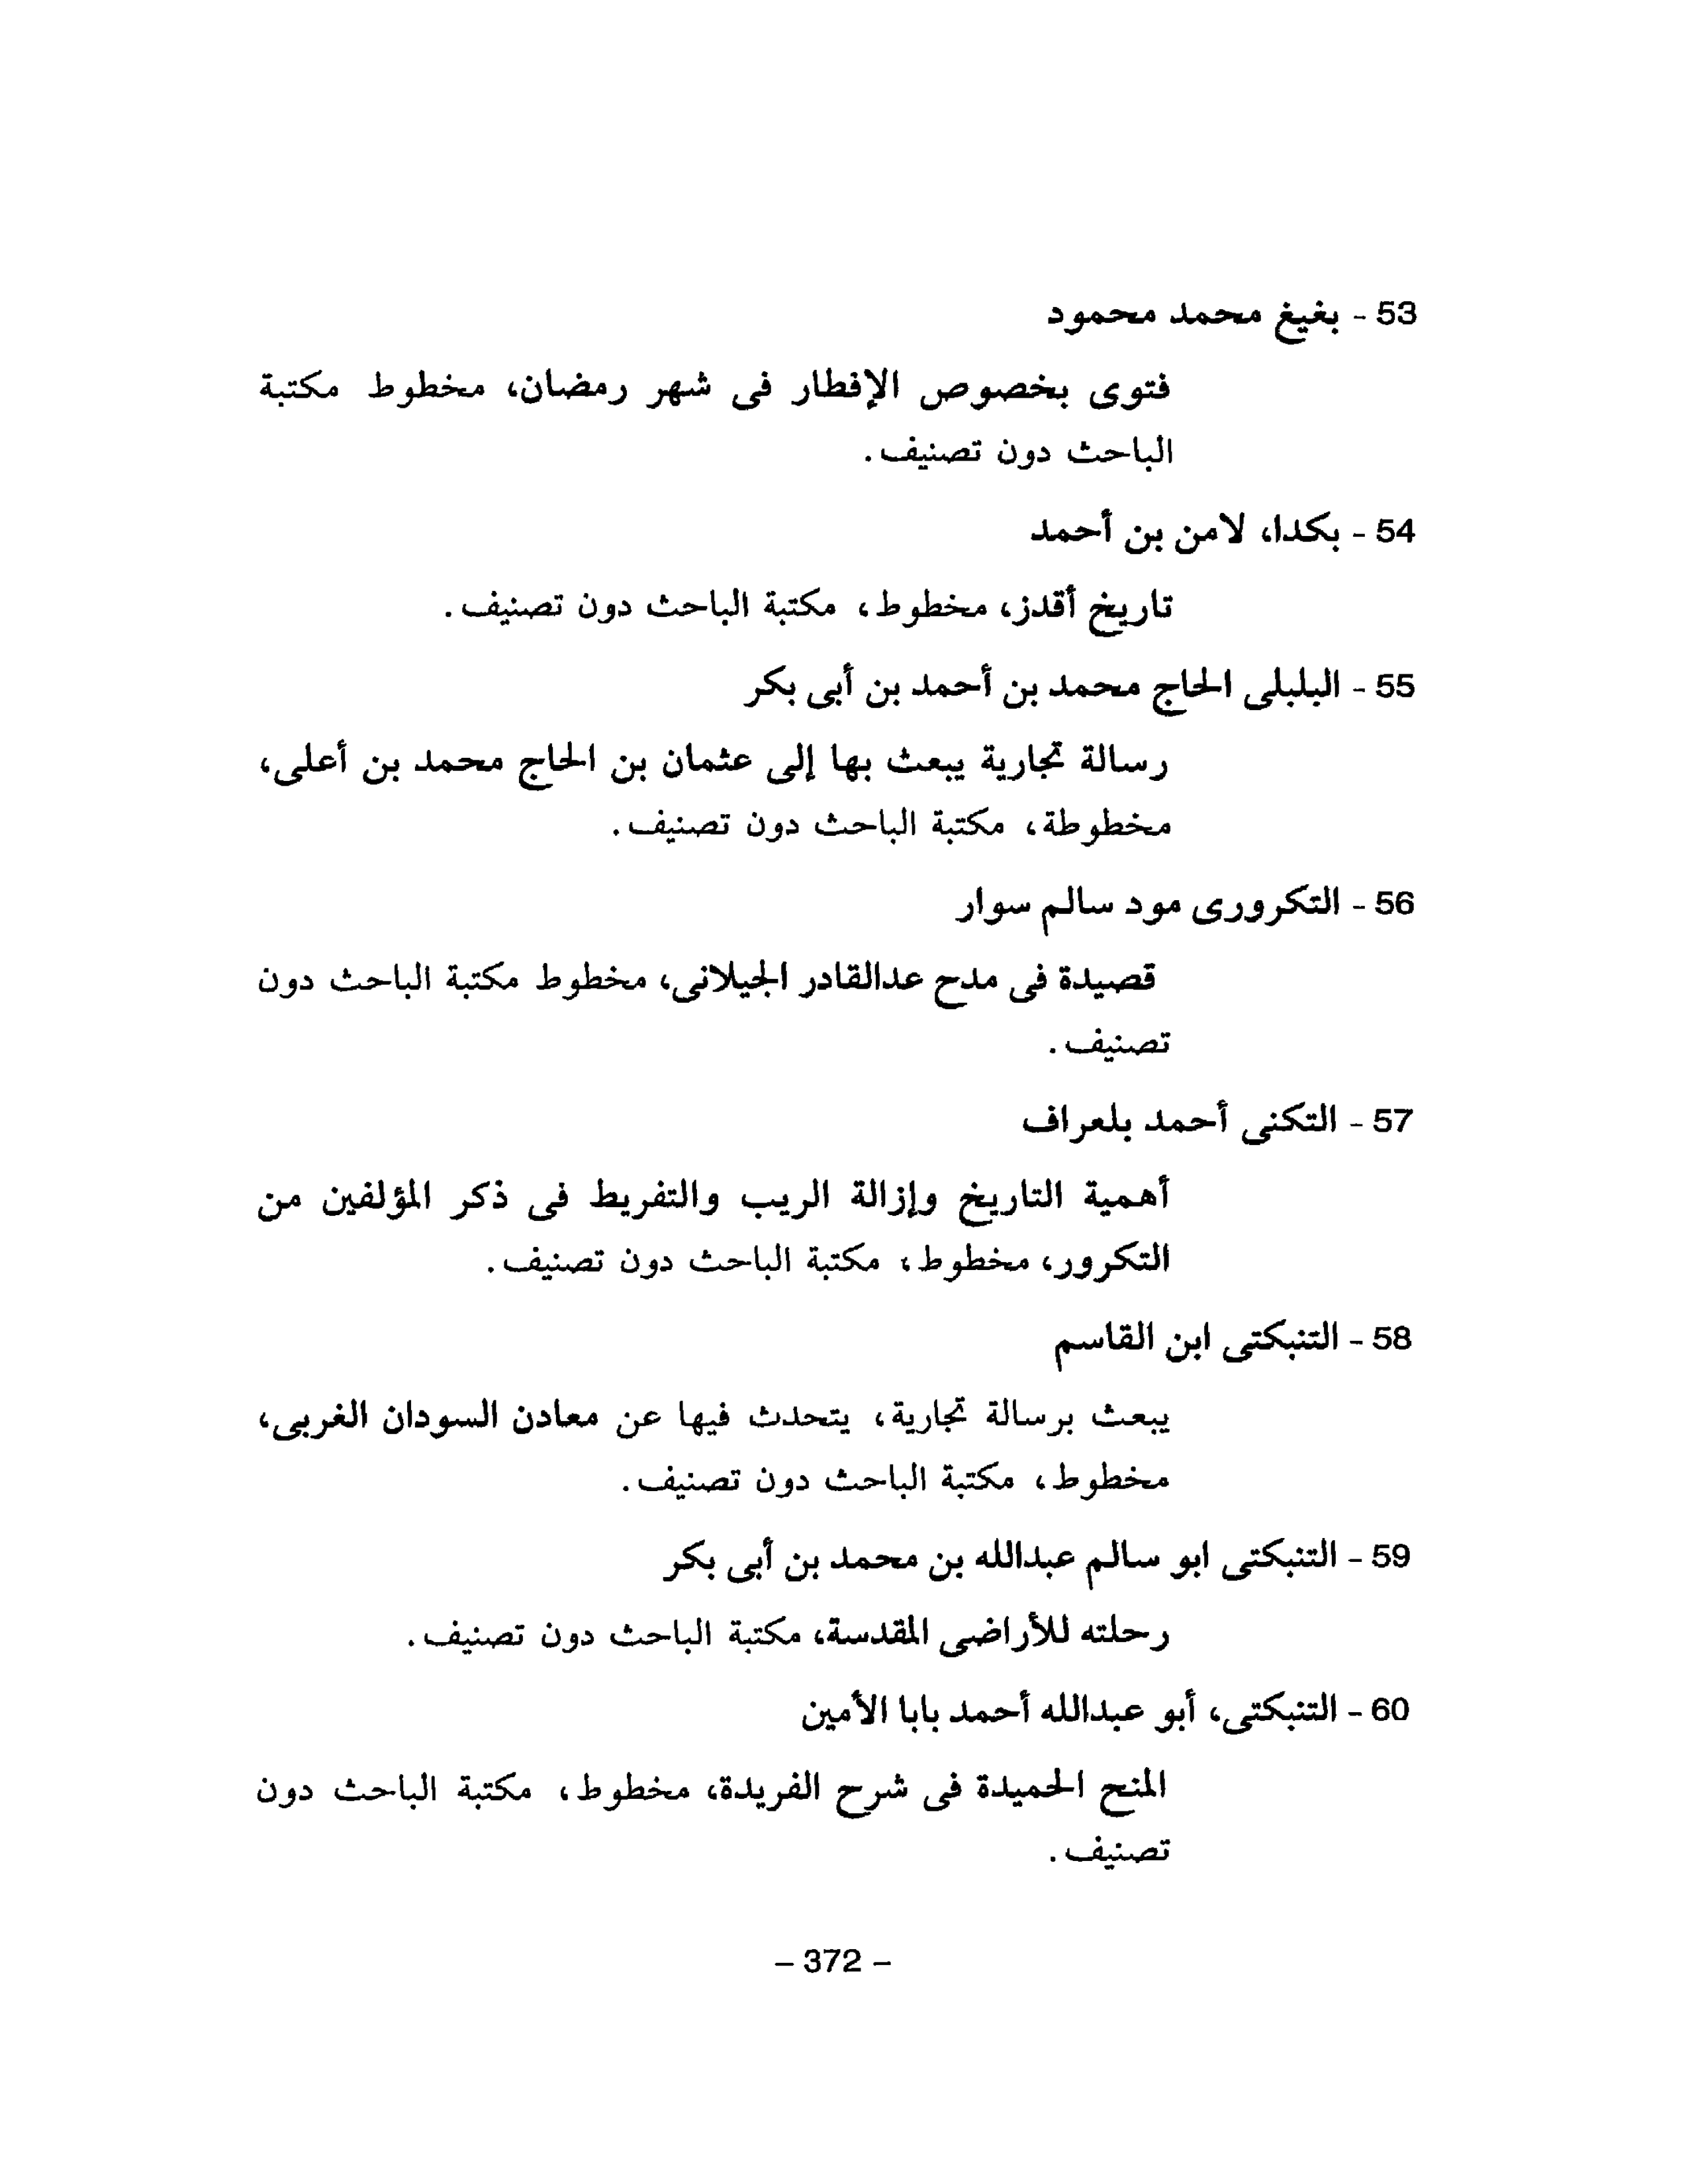 53 - بغيغ محمد محمود
فتوى بخصوص الإفطار فى شهر رمضان، مخطوط مكتبة
الباحث دون تصنيف.
54 - بكدا، لامن بن أحمد
تاريخ أقدز، مخطوط، مكتبة الباحث دون تصنيف.
55 - البلبلى الحاج محمد بن أحمد بن أبى بكر
رسالة تجارية يبعث بها إلى عثمان بن الحاج محمد بن أعلى،
مخطوطة، مكتبة الباحث دون تصنيف.
56 - التكرورى مود سالم سوار
قصيدة فى مدح عدالقادر الجيلانى، مخطوط مكتبة الباحث دون
تصنيف.
57 - التكنى أحمد بلعراف
أهمية التاريخ وإزالة الريب والتفريط فى ذكر المؤلفين من
التكرور، مخطوط، مكتبة الباحث دون تصنيف.
58 - التنبكتى ابن القاسم
يبعث برسالة تجارية، يتحدث فيها عن معادن السودان الغربى،
مخطوط، مكتبة الباحث دون تصنيف.
59 - التنبكتى ابو سالم عبدالله بن محمد بن أبى بكر
رحلته للأراضى المقدسة، مكتبة الباحث دون تصنيف.
60 - التنبكتى، أبو عبدالله أحمد بابا الأمين
المنح الحميدة فى شرح الفريدة، مخطوط، مكتبة الباحث دون
تصنيف.
- 372 -